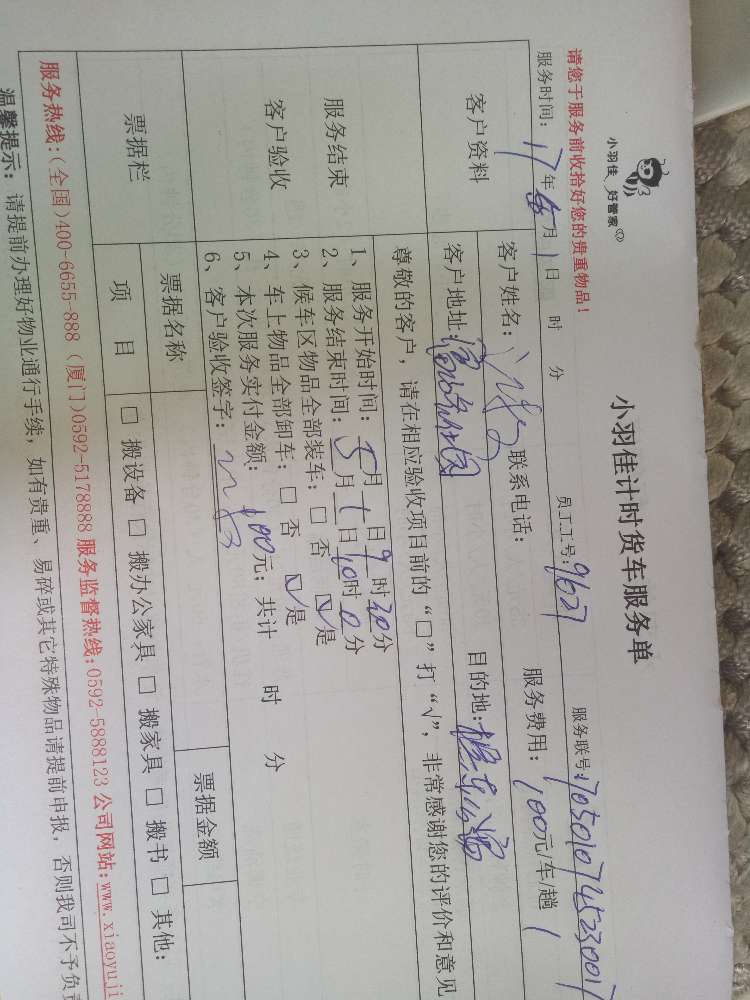 小羽佳 好管家
小羽佳计时货车服务单
请您于服务前收拾好您的贵重物品！
员工工号：9627
服务联号：
服务时间：17年5月1日 时 分
服务费用：100元/车/趟
客户资料
客户姓名： 联系电话：
客户地址： 目的地：
服务结束
客户验收
尊敬的客户，请在相应验收项目前的“□”打“√”，非常感谢您的评价和意见
1、服务开始时间：5月1日9时20分
2、服务结束时间：5月1日10时0分
3、候车区物品全部装车：□ 否 ☑是
4、车上物品全部卸车：□ 否 ☑是
5、本次服务实付金额：100元；共计 时 分
6、客户验收签字：
票据栏
票据名称 票据金额
项 目
□ 搬设备 □ 搬办公家具 □ 搬家具 □ 搬书 □ 其他：
服务热线：(全国)400-6655-888 (厦门)0592-5178888 服务监督热线：0592-5888123 公司网站：www.xiaoyuji
温馨提示：请提前办理好物业通行手续，如有贵重、易碎或其它特殊物品请提前申报，否则我司不予负责